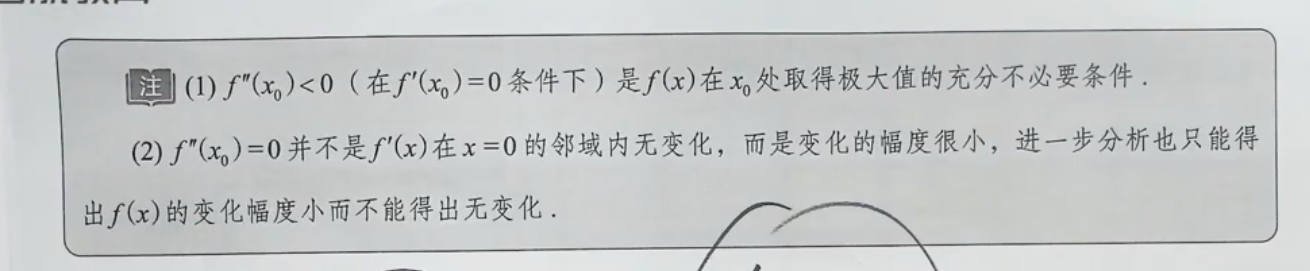 注 (1) f″(x₀)<0（在f′(x₀)=0条件下）是f(x)在x₀处取得极大值的充分不必要条件.
(2) f″(x₀)=0并不是f′(x)在x=0的邻域内无变化，而是变化的幅度很小，进一步分析也只能得
出f(x)的变化幅度小而不能得出无变化.